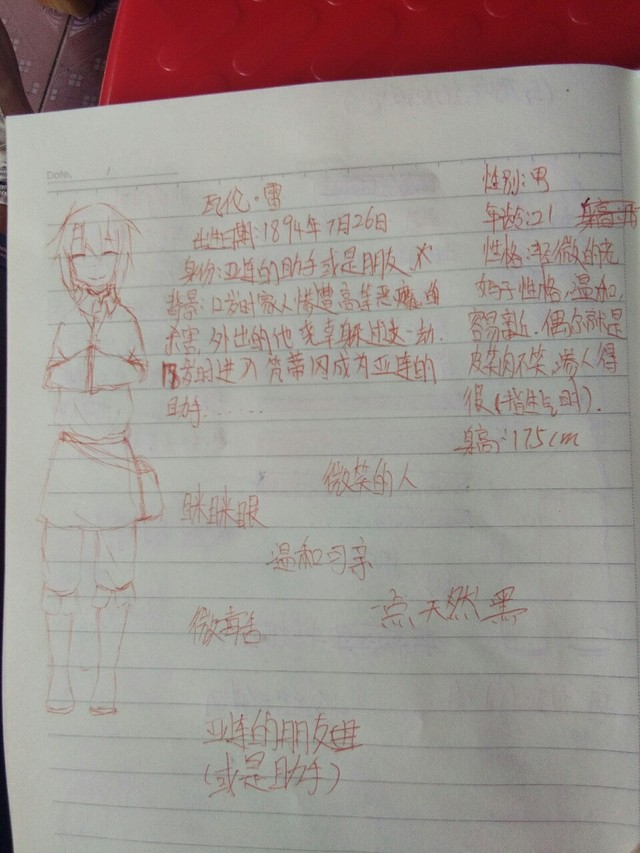 Date.
瓦伦·雷
出生日期:1894年7月26日
身份:亚连的助手或是朋友
背景:12岁时家人惨遭高等恶魔的
杀害,外出的他侥幸躲过这一劫.
18岁时进入 成为亚连的
助手......
性别:男
年龄:21 身高
性格:轻微的
性格,温和,
容易亲近.偶尔就是
皮笑肉不笑,渗人得
很(指生气时).
身高:175cm
微笑的人
眯眯眼
温和可亲
点天然黑
微
亚连的朋友
(或是助手)